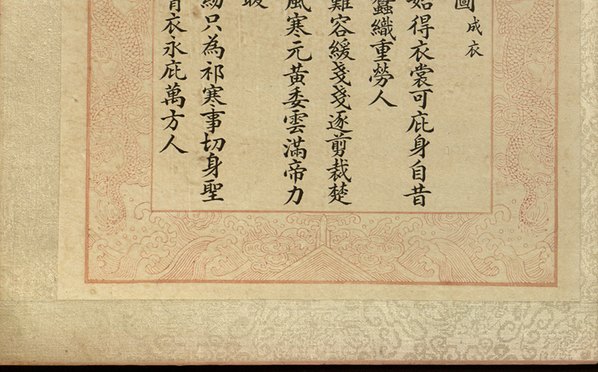 圖成衣
始得衣裳可庇身自昔
蠶織重勞人
難容緩戔戔逐剪裁楚
風寒元黃委雲滿帝力
紉只為祁寒事切身聖
衣永庇萬方人